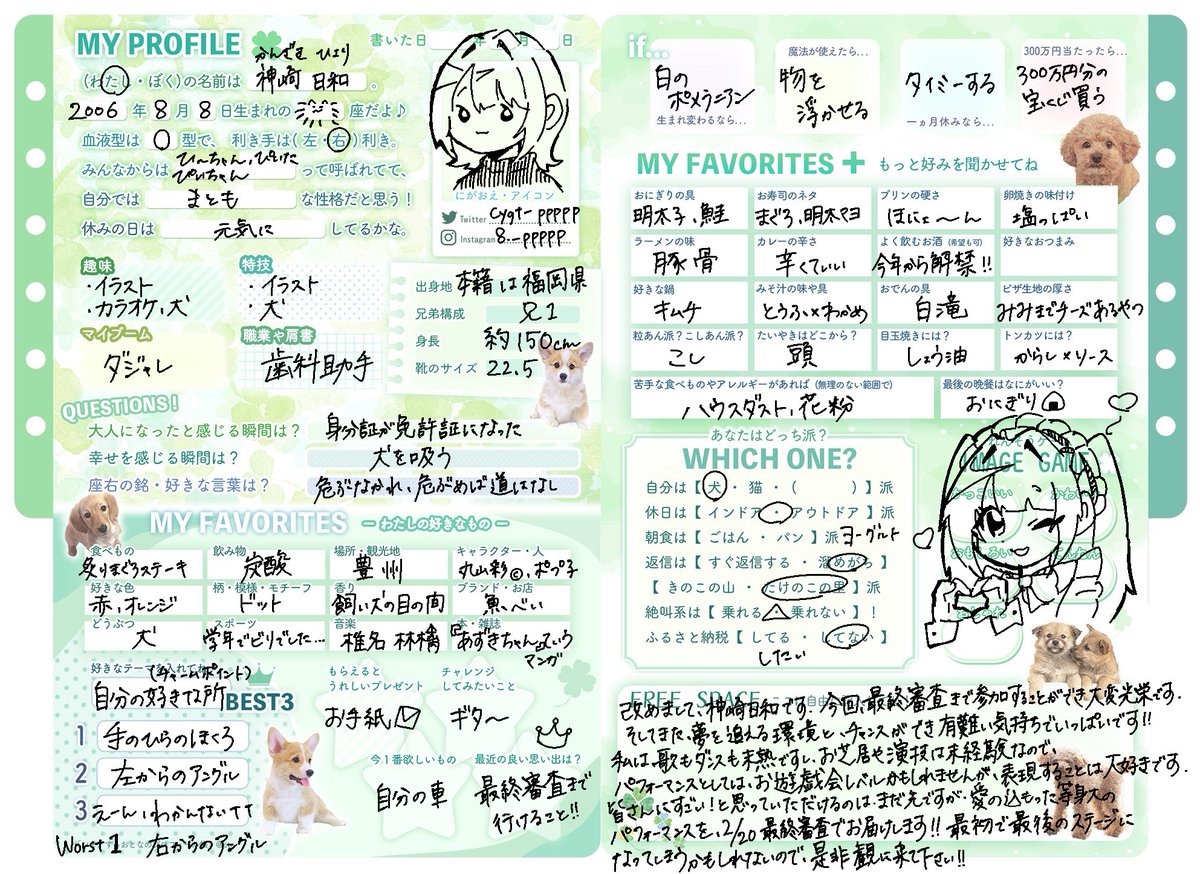 MY PROFILE
書いた日 年 月 日
かんざき ひより
(わたし・ぼく)の名前は 神崎 日和 。
2006 年 8 月 8 日生まれの 座だよ♪
血液型は O 型で、 利き手は(左・右)利き。
みんなからは ひーちゃん、ぴよた
ぴぃちゃん って呼ばれてて、
自分では まとも な性格だと思う！
休みの日は 元気に してるかな。
にがおえ・アイコン
Twitter cygt_ppppp
Instagram 8._ppppp
趣味
・イラスト
・カラオケ、犬
特技
・イラスト
・犬
マイブーム
ダジャレ
職業や肩書
歯科助手
出身地 本籍は福岡県
兄弟構成 兄1
身長 約150cm
靴のサイズ 22.5
QUESTIONS!
大人になったと感じる瞬間は？ 身分証が免許証になった
幸せを感じる瞬間は？ 犬を吸う
座右の銘・好きな言葉は？ 危ぶなかれ、危ぶめば道はなし
MY FAVORITES －わたしの好きなもの－
食べもの 飲み物 場所・観光地 キャラクター・人
炙りまぐろステーキ 炭酸 豊州 丸山彩◎、ポプ子
好きな色 柄・模様・モチーフ 香り ブランド・お店
赤、オレンジ ドット 飼い犬の目の間 魚べい
どうぶつ スポーツ 音楽 本・雑誌
犬 学年でビリでした… 椎名 林檎 『あずきちゃん』という
マンガ
好きなテーマを入れてね
(チャームポイント)
自分の好きな所 BEST3
1 手のひらのほくろ
2 左からのアングル
3 えーんわかんないTT
Worst 1 右からのアングル
もらえると
うれしいプレゼント
お手紙
チャレンジ
してみたいこと
ギター
今1番欲しいもの
自分の車
最近の良い思い出は？
最終審査まで
行けること!!
if...
白の
ポメラニアン
生まれ変わるなら…
魔法が使えたら…
物を
浮かせる
タイミーする
一ヵ月休みなら…
300万円当たったら…
300万円分の
宝くじ買う
MY FAVORITES＋ もっと好みを聞かせてね
おにぎりの具 お寿司のネタ プリンの硬さ 卵焼きの味付け
明太子、鮭 まぐろ、明太マヨ ほにょ〜ん 塩っぱい
ラーメンの味 カレーの辛さ よく飲むお酒(希望も可) 好きなおつまみ
豚骨 辛くていい 今年から解禁!!
好きな鍋 みそ汁の味や具 おでんの具 ピザ生地の厚さ
キムチ とうふ×わかめ 白滝 みみまでチーズあるやつ
粒あん派？こしあん派？ たいやきはどこから？ 目玉焼きには？ トンカツには？
こし 頭 しょう油 からし×ソース
苦手な食べものやアレルギーがあれば(無理のない範囲で) 最後の晩餐はなにがいい？
ハウスダスト、花粉 おにぎり
あなたはどっち派？
WHICH ONE?
自分は【 犬 ・ 猫 ・ ( ) 】派
休日は【 インドア ・ アウトドア 】派
朝食は【 ごはん ・ パン 】派 ヨーグルト
返信は【 すぐ返信する ・ 溜めがち 】
【 きのこの山 ・ たけのこの里 】派
絶叫系は【 乗れる 乗れない 】！
ふるさと納税【 してる ・ してない 】
したい
IMAGE GAME
かっこいい
かわいい
おもしろい
FREE SPACE
改めまして、神崎日和です。今回、最終審査まで参加することができ大変光栄です。
そしてまた、夢を追える環境と、チャンスができ有難い気持ちでいっぱいです!!
私は歌もダンスも未熟ですし、お芝居や演技は未経験なので、
パフォーマンスとしては、お遊戯会レベルかもしれませんが、表現することは大好きです。
皆さんにすごい！と思っていただけるのはまだ先ですが、愛の込もった等身大の
パフォーマンスを、2/20 最終審査でお届けします!! 最初で最後のステージに
なってしまうかもしれないので、是非観に来て下さい!!